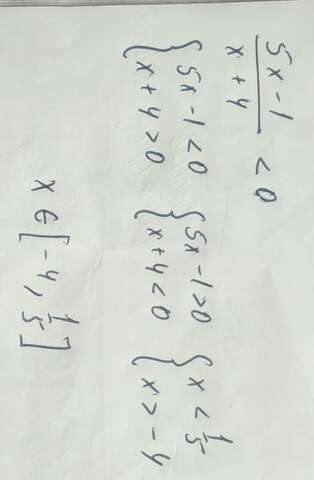 \frac{5x-1}{x+4} < 0
\begin{cases} 5x-1<0 \\ x+4>0 \end{cases} \begin{cases} 5x-1>0 \\ x+4<0 \end{cases} \begin{cases} x<\frac{1}{5} \\ x>-4 \end{cases}
x \in [-4, \frac{1}{5}]